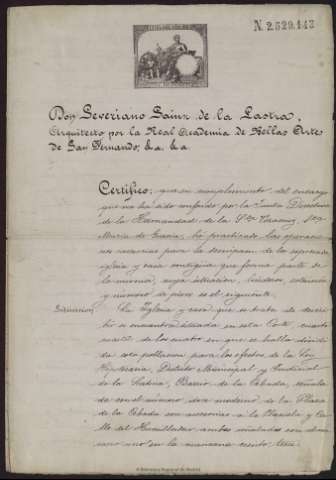 N. 2.529.143
Don Severiano Sainz de la Lastra,
Arquitecto por la Real Academia de Bellas Artes
de San Fernando, &a. &a.
Certifico: que en cumplimiento del encargo
que me ha sido confiado por la Junta Directiva
de la Hermandad de la Sta. Veracruz, Sta.
María de Gracia, he practicado las operacio-
nes necesarias para la descripcion de la expresada
iglesia y casa contigua que forma parte de
la misma, cuya situacion, linderos, estension
y numero de pisos es el siguiente.
Situacion. La Iglesia y casa que se trata de descri-
bir se encuentra situada en esta Corte, cuarta
seccion de las cuatro en que se halla dividi-
da esta poblacion para los efectos de la Ley
Hipotecaria, Distrito Municipal y Judicial
de la Latina, Barrio de la Cebada, señala-
da con el número dos moderno de la Plaza
de la Cebada con accesorias a la Plazuela y Ca-
lle del Humilladero ambas señaladas con el nú-
mero uno en la manzana ciento